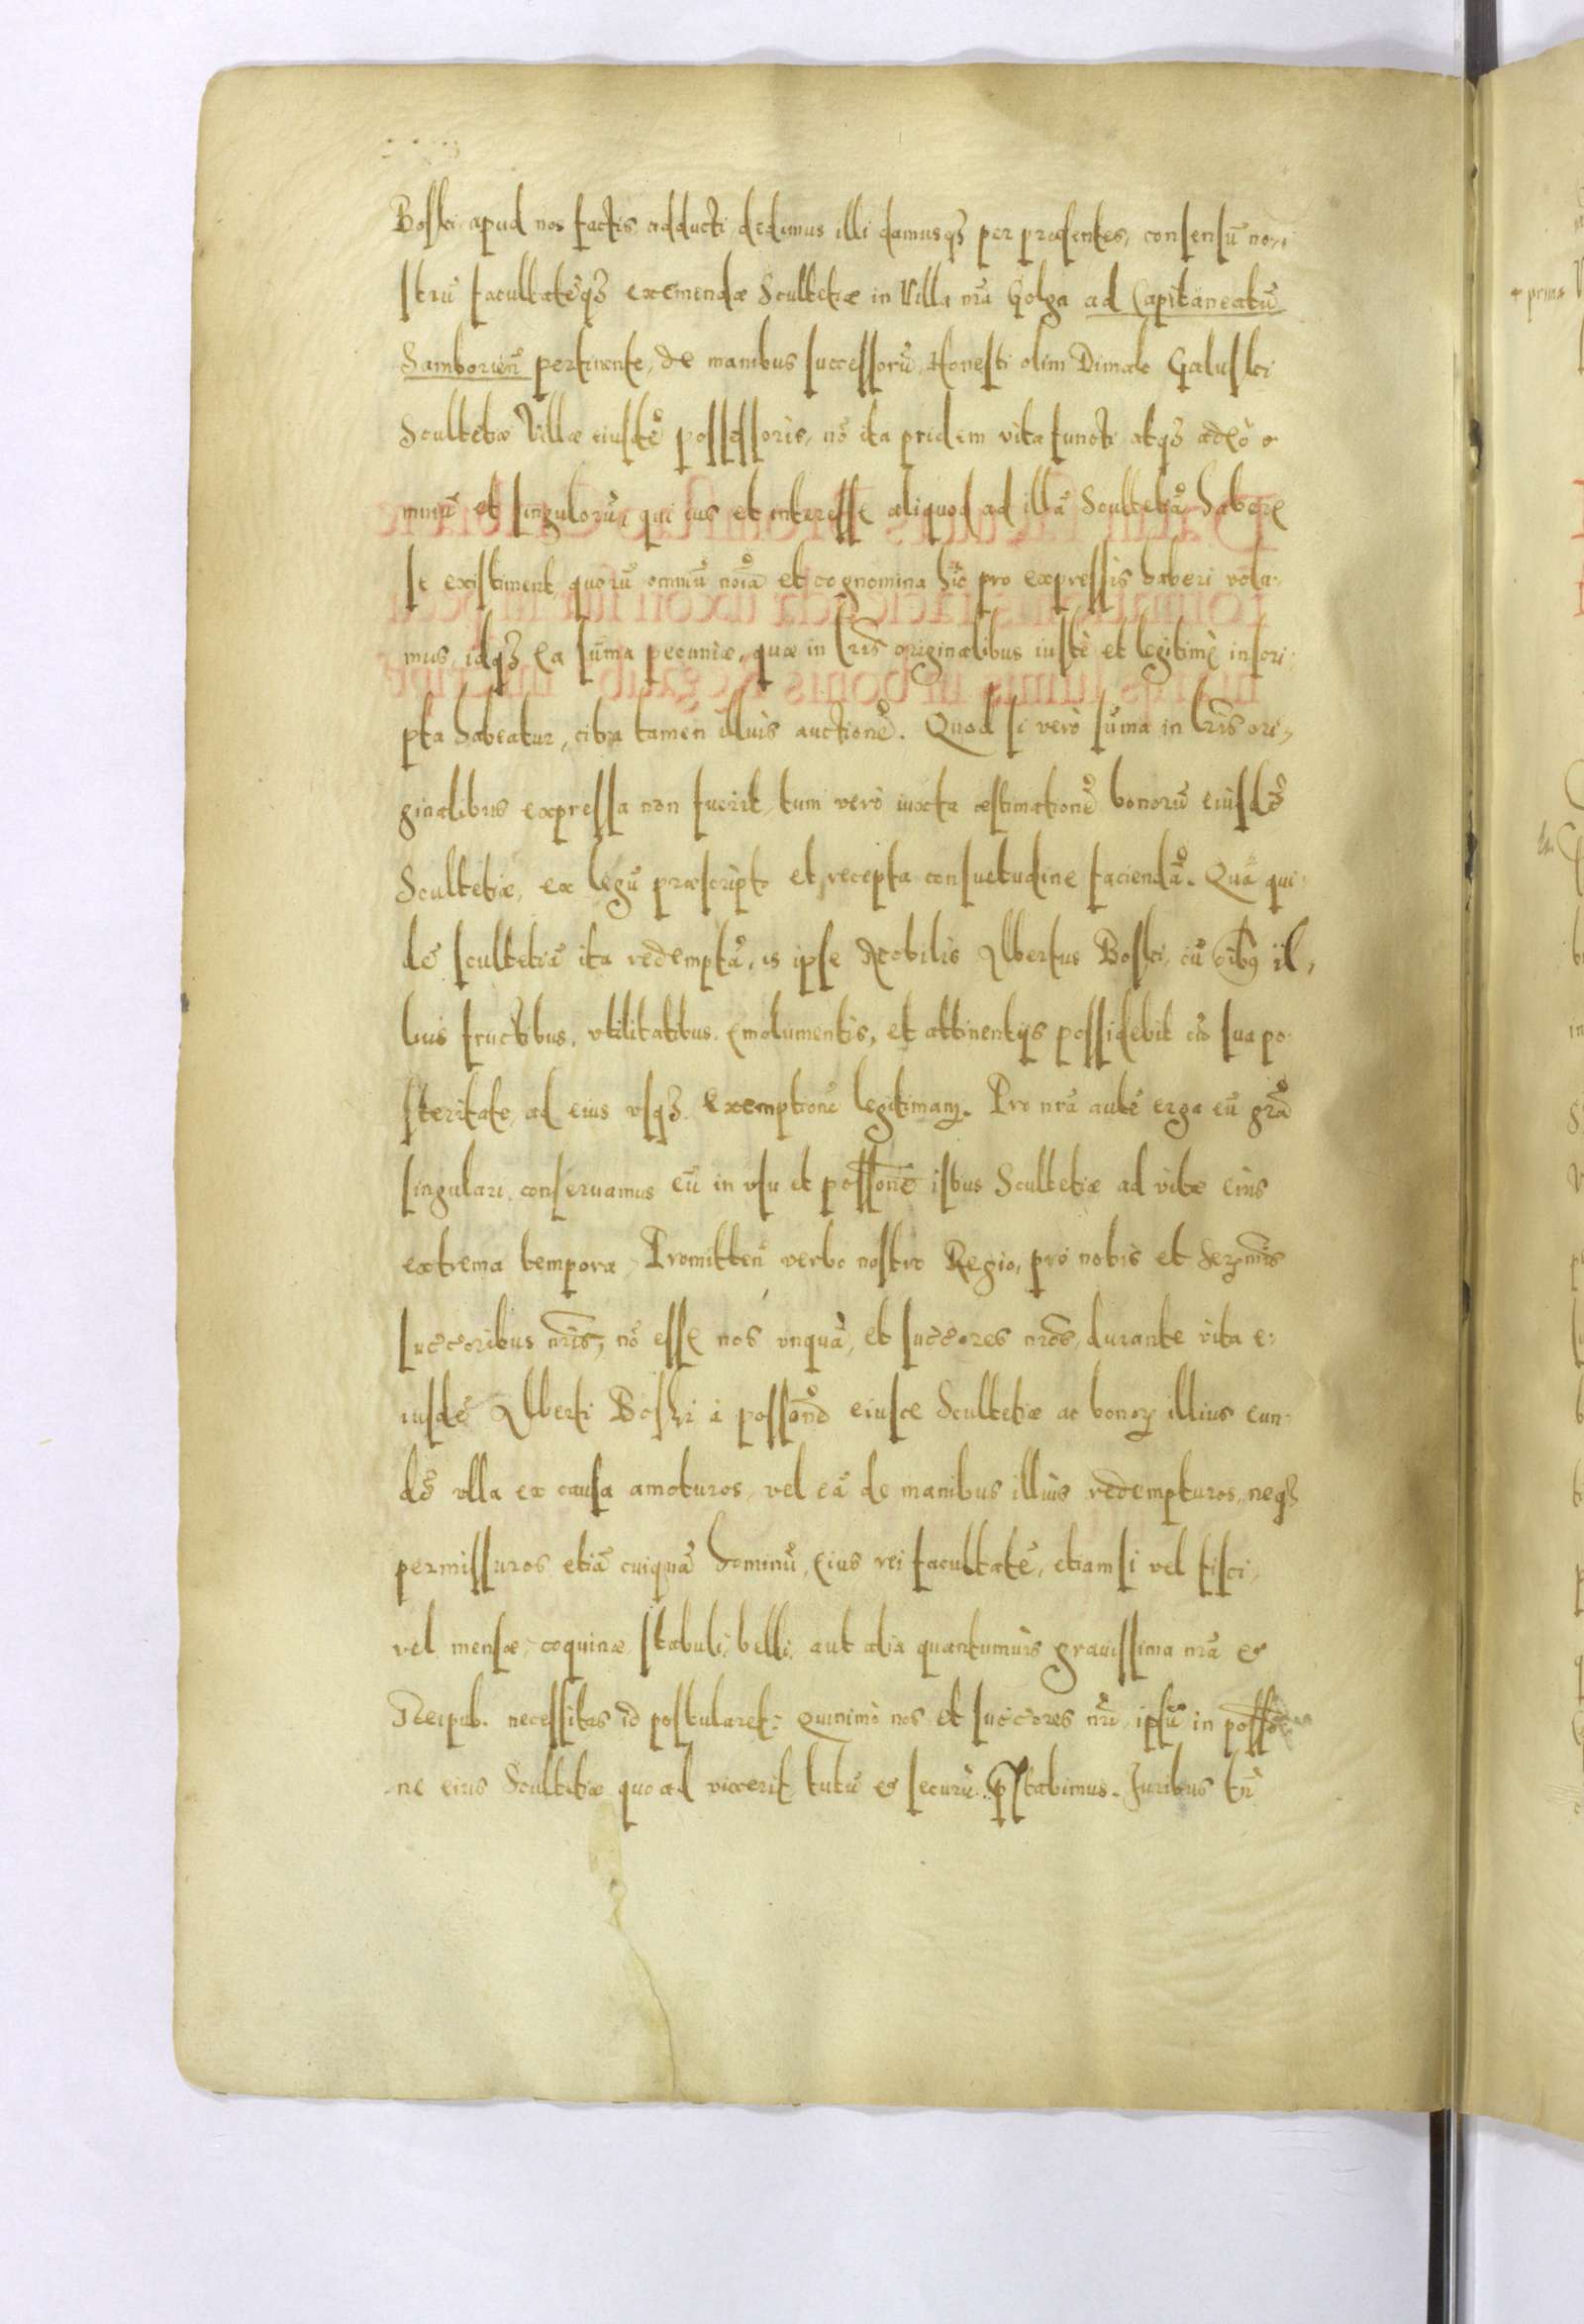 Boski apud nos factis adducti dedimus illi damusq₃ per præsentes, consensū no-
strū facultatēq₃ eximendæ Scultetiæ in Villa nrā Golga ad Capitaneatū
Samborieñ pertinente, de manibus successorū Honesti olim Dimak Galuski
Scultetiæ Villæ eiusdē possessoris, nō ita pridem vita functi atq₃ adeò o-
mniū et singulorū, qui ius et interesse aliquod ad illā Scultetiā habere
se existiment, quorū omniū noīa et cognomina hîc pro expressis haberi volu-
mus, idq₃ ea sūma pecuniæ, quæ in lrīs originalibus iustè et legitimè inscri-
pta habeatur, citra tamen illius auctionē. Quod si verò sūma in lrīs ori-
ginalibus expressa non fuerit, tum verò iuxta æstimationē bonorū eiusdē
Scultetiæ, ex legū præscripto et recepta consuetudine faciendā. Quā qui-
dē scultetiā ita redemptā, is ipse Nobilis Albertus Boski, cū oībꝯ il-
lius fructibus, vtilitatibus, emolumentis, et attinentijs possidebit cū sua po-
steritate, ad eius vsq₃ exemptionē legitimam. Pro nrā autē erga eū grā
singulari, conseruamus eū in vsu et possōnē istius Scultetiæ ad vitæ eius
extrema tempora, Promitteñ verbo nostro Regio, pro nobis et Serᵐīs
succoribus nrīs, nō esse nos vnquā, et succores nrōs, durante vita e-
iusdē Alberti Boski à possōne eiusce Scultetiæ ac bonoꝝ illius eun-
dē vlla ex causa amoturos, vel eā de manibus illius redempturos, neq₃
permissuros etiā cuiquā hominū, eius rei facultatē, etiamsi vel fisci,
vel mensæ, coquinæ, stabuli, belli, aut alia quantumuis grauissima nrā &
Reipub. necessitas id postularet: Quinimò nos et succores nrī, ipsū in possō-
ne eius Scultetiæ quoad vixerit, tutū & securū p̄stabimus. Juribus tñ